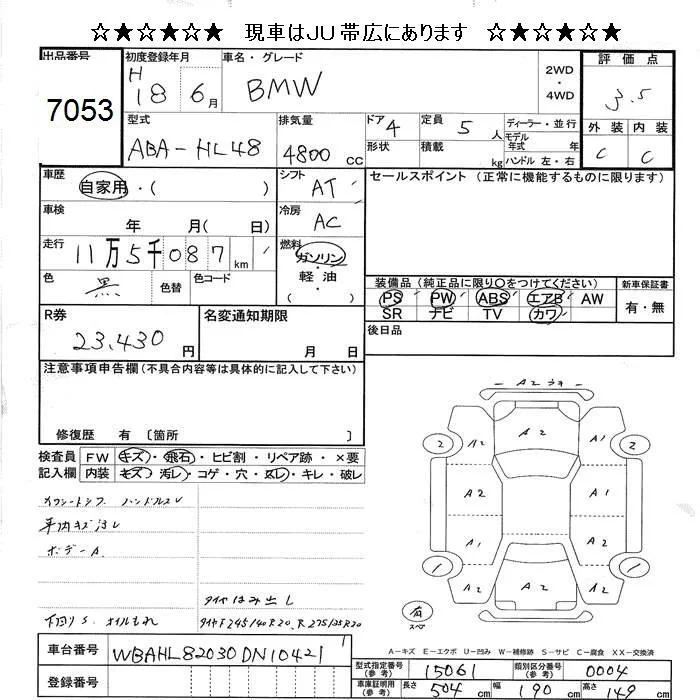 ☆★☆★☆★ 現車はJU帯広にあります ☆★☆★☆★
出品番号 7053
初度登録年月 H 18 6月
車名・グレード BMW
2WD・4WD
評価点 3.5
外装 C 内装 C
型式 ABA-HL48
排気量 4800 CC
ドア 4 形状
定員 5 人 積載 kg
ディーラー・並行
モデル年式 年
ハンドル 左・右
車歴 自家用・( )
シフト AT
セールスポイント (正常に機能するものに限ります)
車検 年 月( 日)
冷房 AC
走行 11万5千087 km
燃料 ガソリン・軽油 ( )
色 黒 色替 色コード
装備品 (純正品に限り○をつけてください) 新車保証書
PS PW ABS エアB AW 有・無
SR ナビ TV カワ
R券 23,430 円
名変通知期限 月 日
後日品
注意事項申告欄 (不具合内容等は具体的に記入して下さい)
修復歴 有 〔箇所 〕
検査員記入欄 FW キズ・飛石・ヒビ割・リペア跡・×要
内装 キズ・汚レ・コゲ・穴・スレ・キレ・破レ
カワシートシワ ハンドルスレ
車内キズ汚レ
ボデーA
タイヤはみ出し
下回りS オイルもれ タイヤF245/40R20 R275/35R20
A2
A2 A2 A1
2 2
A2 A1
A2 A2
1 1
A2 A2 A2
有 スペア
A-キズ E-エクボ U-凹み W-補修跡 S-サビ C-腐食 XX-交換済
車台番号 WBAHL82030DN10421
型式指定番号(参考) 15061 類別区分番号(参考) 0004
登録番号
車庫証明用(参考) 長さ 504 cm 幅 190 cm 高さ 149 cm